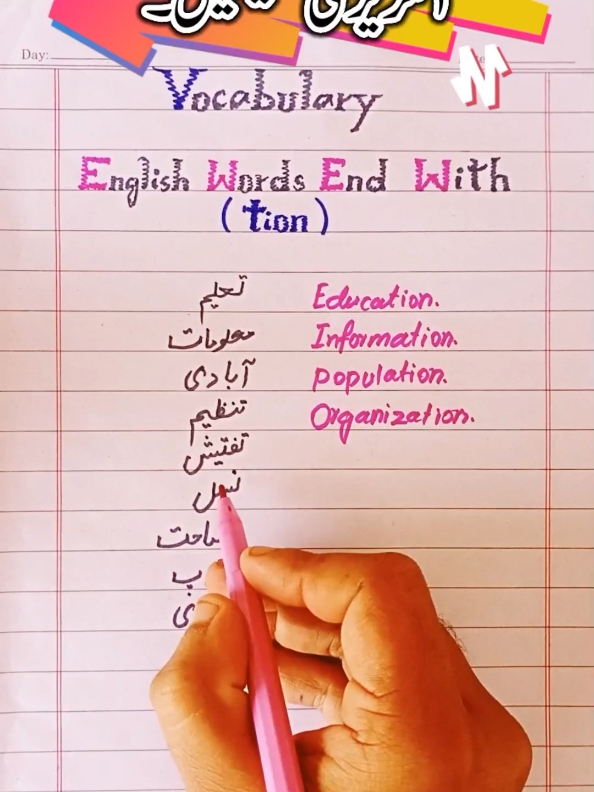 Day:
Vocabulary
English Words End With
(tion)
تعلیم Education.
معلومات Information.
آبادی population.
تنظیم Organization.
تفتیش
نسل